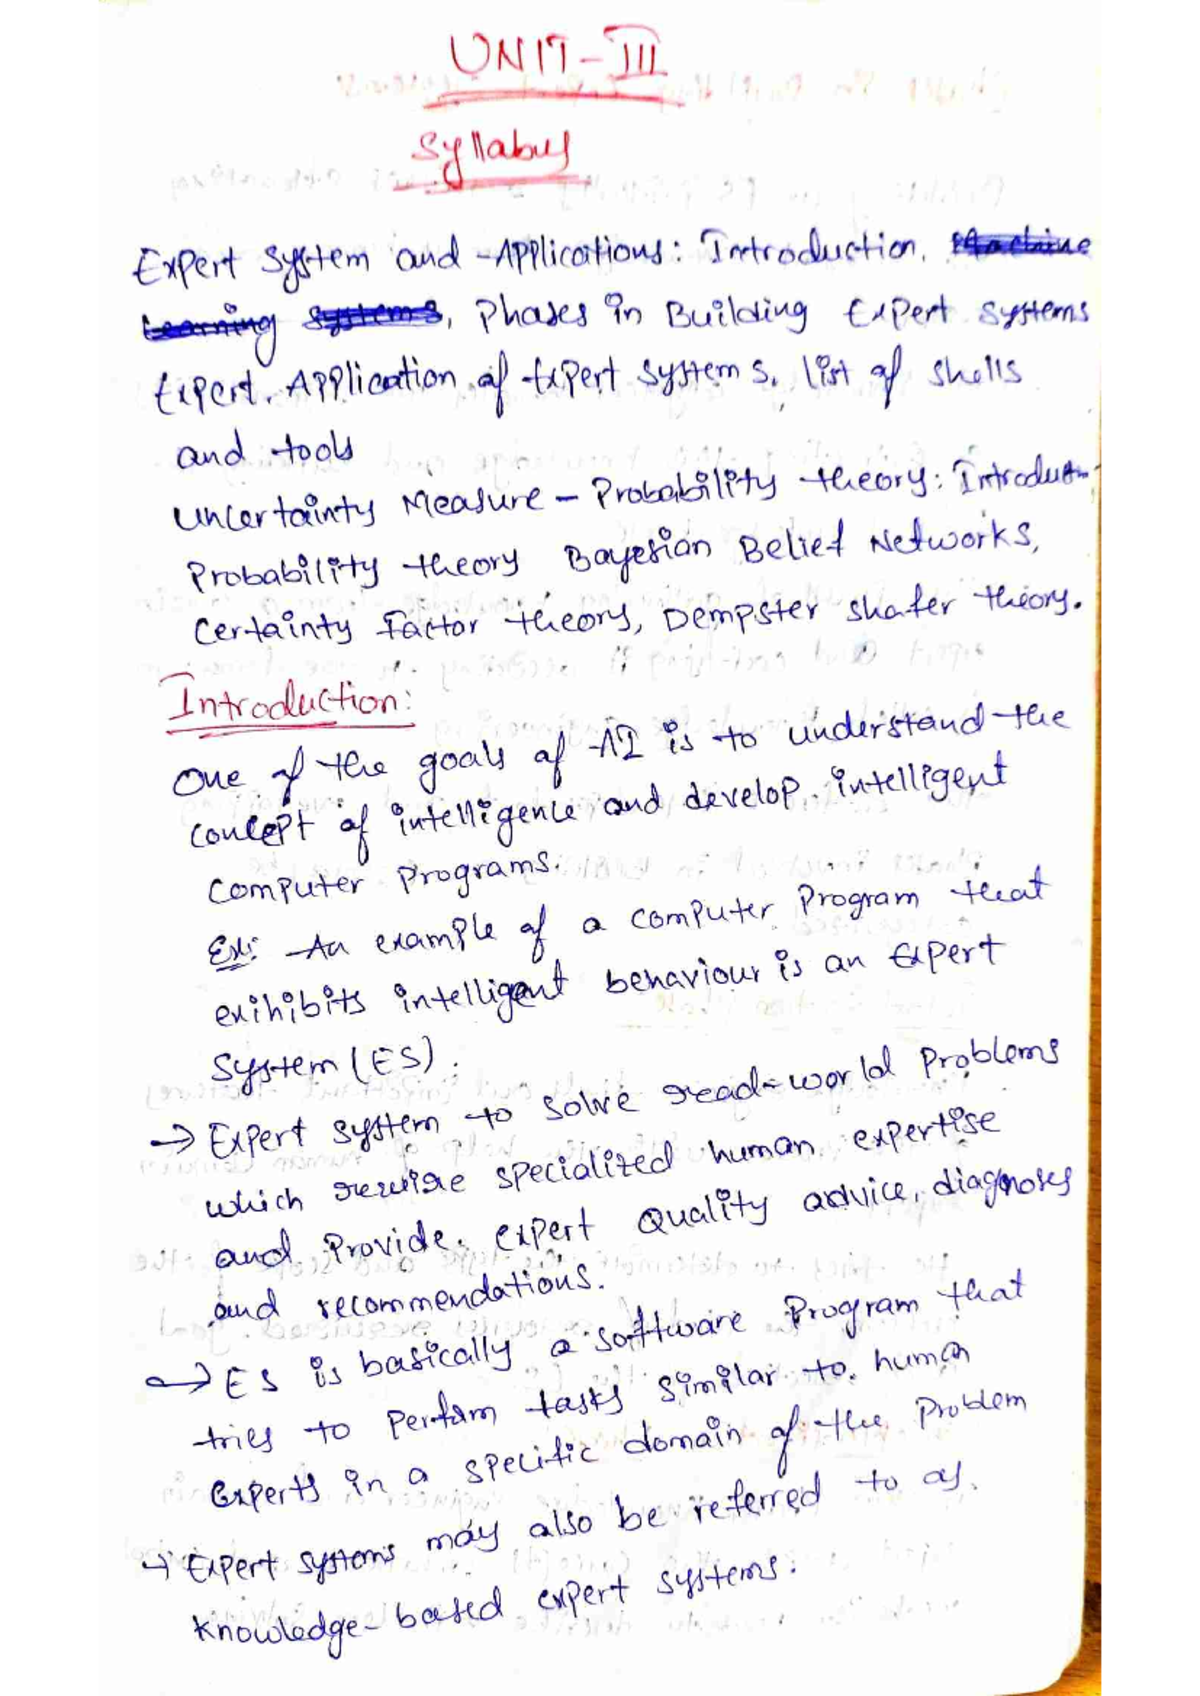 UNIT-III
Syllabus
Expert System and Applications: Introduction, Machine
Learning Systems, Phases in Building Expert Systems
Expert, Application of Expert systems, list of shells
and tools
Uncertainty Measure - Probability theory: Introduct-
Probability theory Bayesian Belief Networks,
Certainty Factor theory, Dempster shafer theory.
Introduction:
One of the goals of AI is to understand the
concept of intelligence and develop intelligent
computer programs.
Ex: An example of a computer program that
exihibits intelligent behaviour is an Expert
System (ES).
→ Expert system to solve read-world problems
which require specialized human expertise
and provide expert quality advice, diagnoses
and recommendations.
→ ES is basically a software program that
tries to perform tasks similar to human
experts in a specific domain of the problem
→ Expert systems may also be referred to as
knowledge-based expert systems.